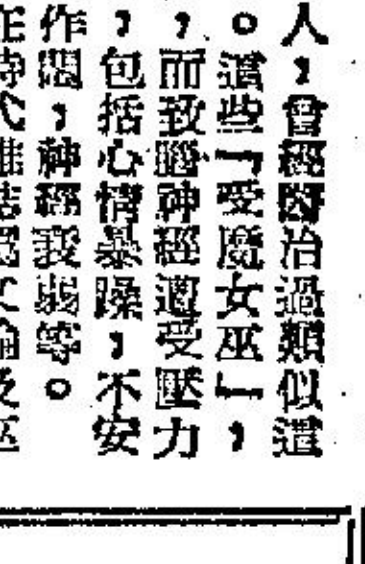 人，曾經醫治過類似這
。這些「受魔女巫」，
，而致腦神經遭受壓力
，包括心情暴躁，不安
作悶，神經衰弱等。